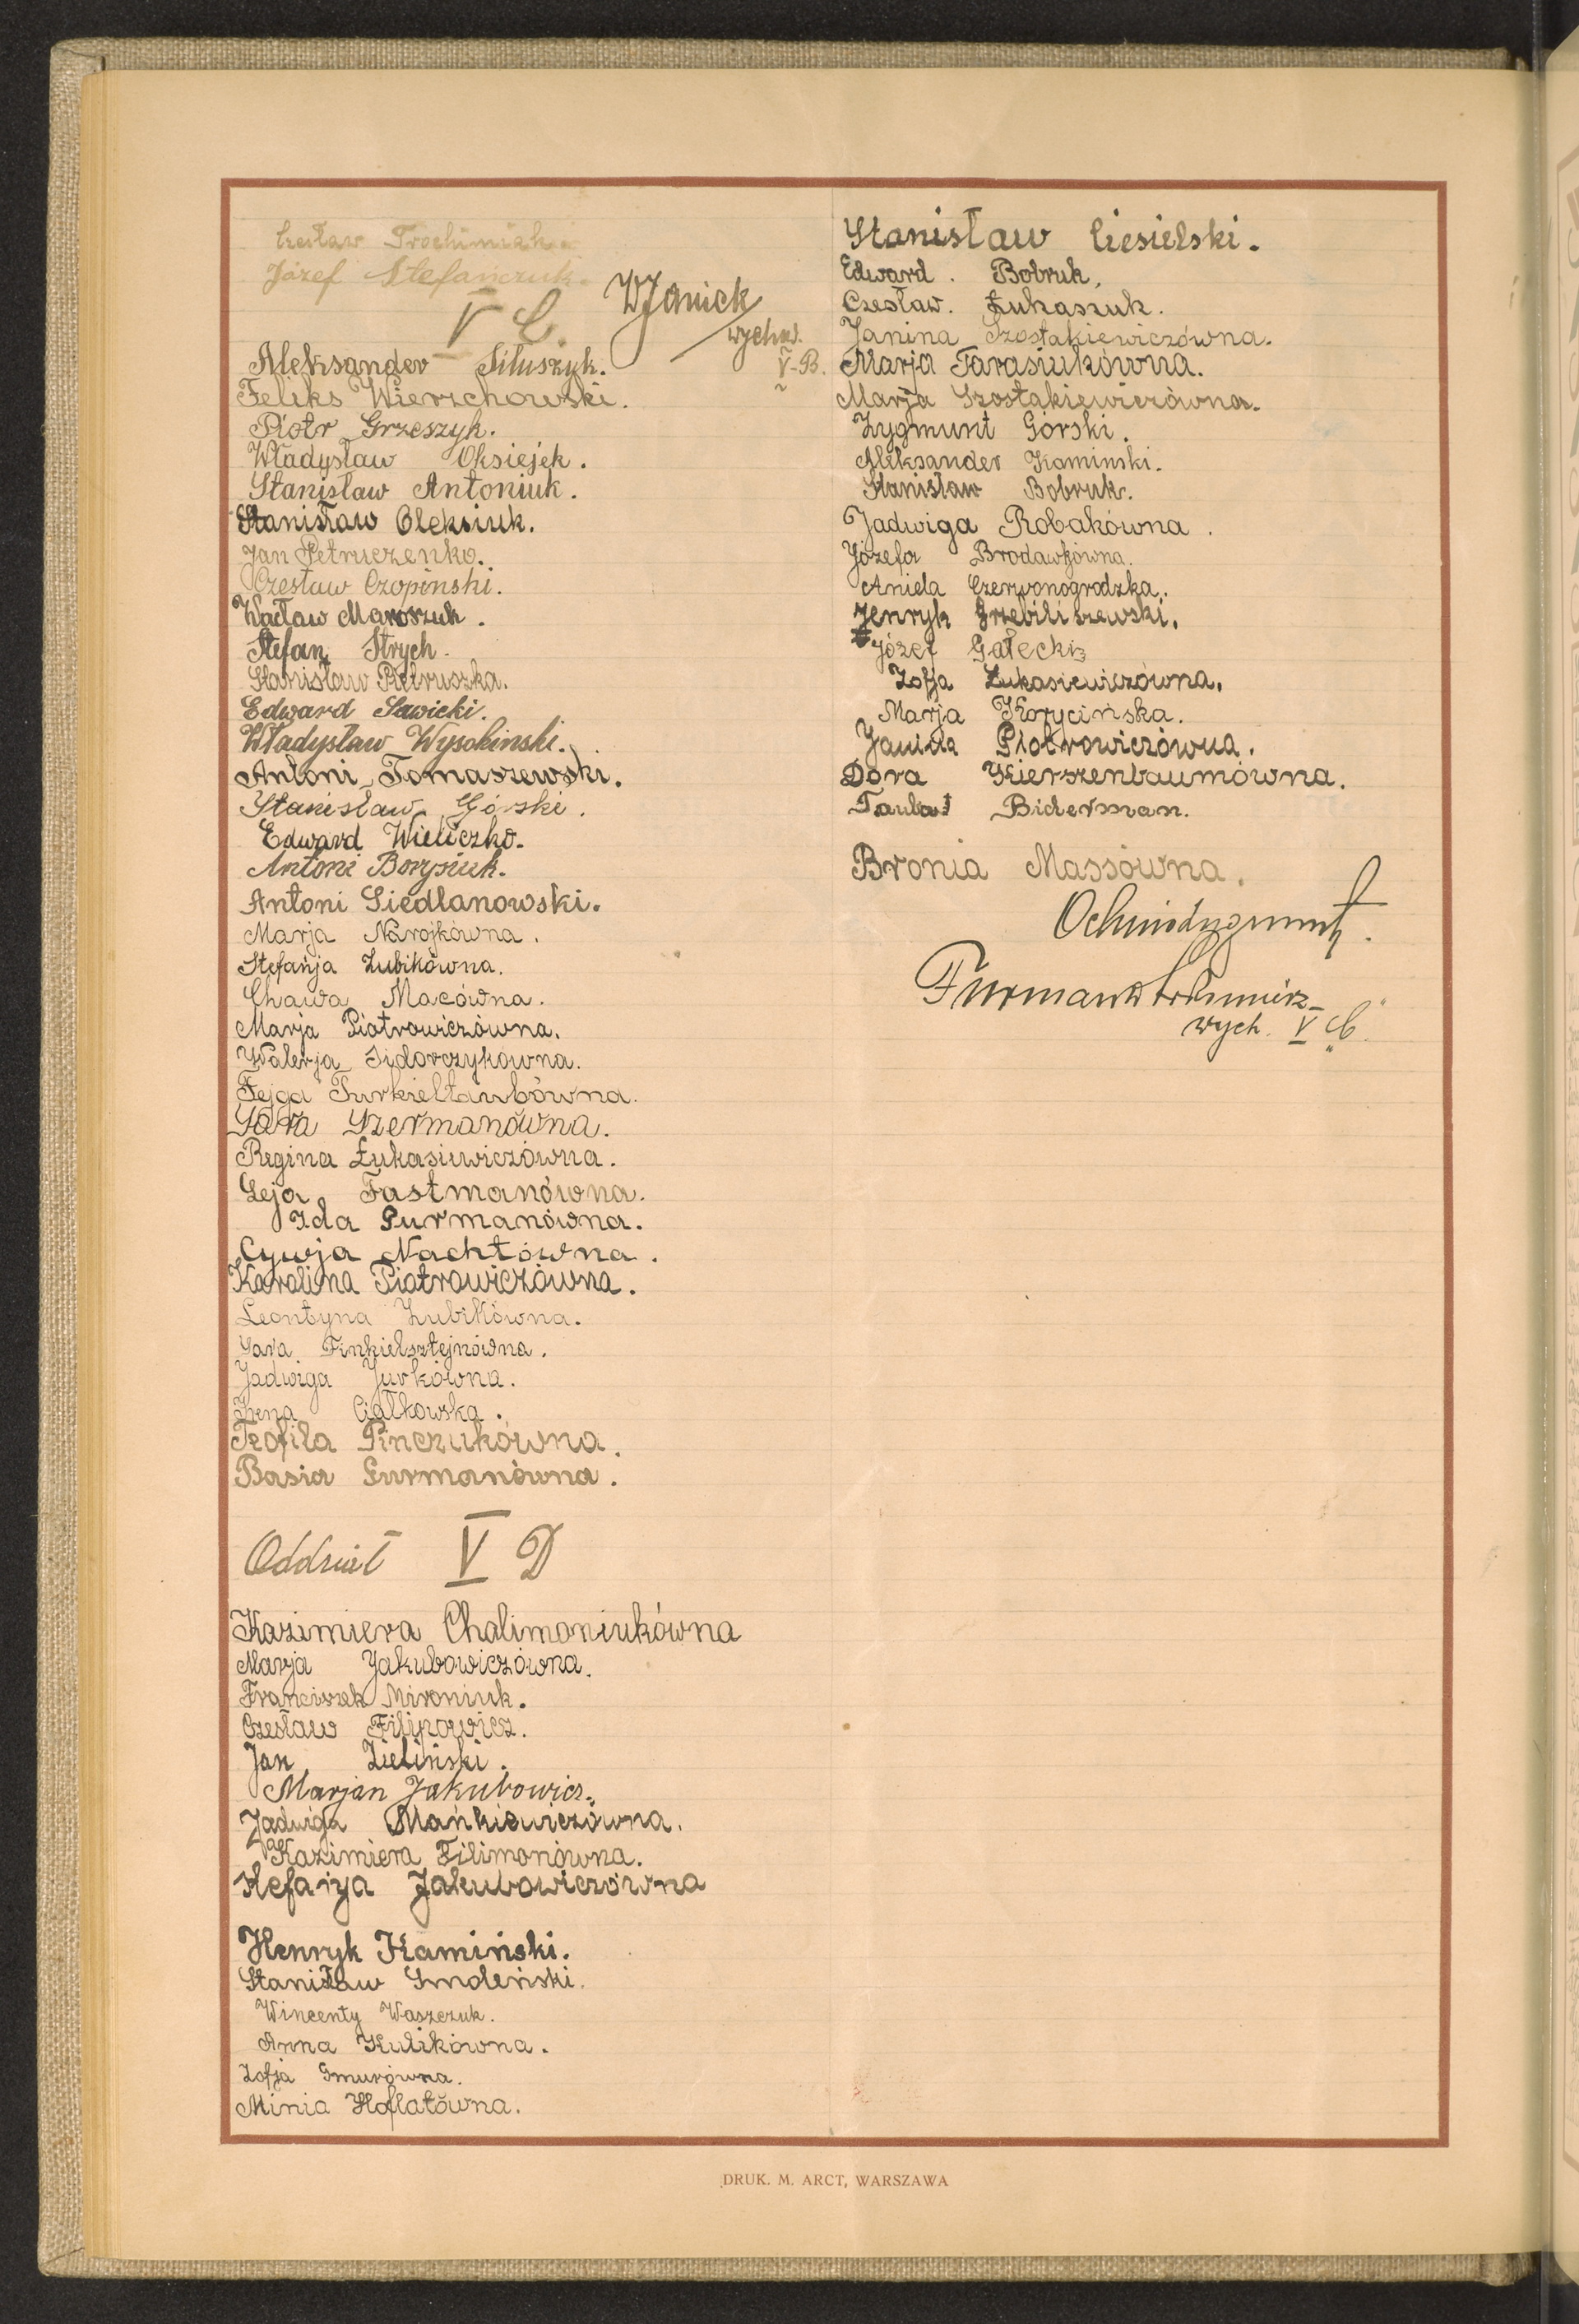 Czesław Trochimiak.
Józef Stefańczuk.
V C.
WJanick
wychow.
V-B.
Aleksander Siłuszyk.
Feliks Wierzchowski.
Piotr Grzeszyk.
Władysław Oksiejek.
Stanisław Antoniuk.
Stanisław Oleksiuk.
Jan Petruczenko.
Czesław Czopinski.
Wacław Maroszuk.
Stefan Strych.
Stanisław Pietruszka.
Edward Sawicki.
Władysław Wysokinski.
Antoni Tomaszewski.
Stanisław Górski.
Edward Wieliczko.
Antoni Borysiuk.
Antoni Siedlanowski.
Marja Narojkówna.
Stefanja Zubikówna.
Chawa Macówna.
Marja Piotrowiczówna.
Walerja Sidorczykówna.
Fejga Turkieltaubówna.
Sara Szermanówna.
Regina Łukasiewiczówna.
Leja Fastmanówna.
Ida Surmanówna.
Cywja Nachtówna.
Karolina Piotrowiczówna.
Leontyna Zubikówna.
Sara Finkielsztejnówna.
Jadwiga Jurkówna.
Irena Ciołkowska.
Teofila Pinczukówna.
Basia Surmanówna.
Oddział V D
Kazimiera Chalimoniukówna
Marja Jakubowiczówna.
Franciszek Mironiuk.
Czesław Filipowicz.
Jan Zieliński.
Marjan Jakubowicz.
Jadwiga Mańkiewiczówna.
Kazimiera Filimonówna.
Stefanja Jakubowiczówna
Henryk Kamiński.
Stanisław Smoleński.
Wincenty Waszczuk.
Anna Kulikówna.
Zofja Smurówna.
Minia Hoflatówna.
Stanisław Ciesielski.
Edward. Bobruk.
Czesław. Łukaszuk.
Janina Szostakiewiczówna.
Marja Tarasiukówna.
Marja Szostakiewiczówna.
Zygmunt Górski.
Aleksander Kaminski.
Stanisław Bobruk.
Jadwiga Robakówna.
Józefa Brodawkówna.
Aniela Czerwonogrodzka.
Henryk Grzebiliszewski.
Józef Gałecki
Zofja Łukasiewiczówna.
Marja Korycińska.
Janina Piotrowiczówna.
Dora Kierszenbaumówna.
Tauba Biderman.
Bronia Massówna.
Furmank
wych. V "C"
DRUK. M. ARCT, WARSZAWA